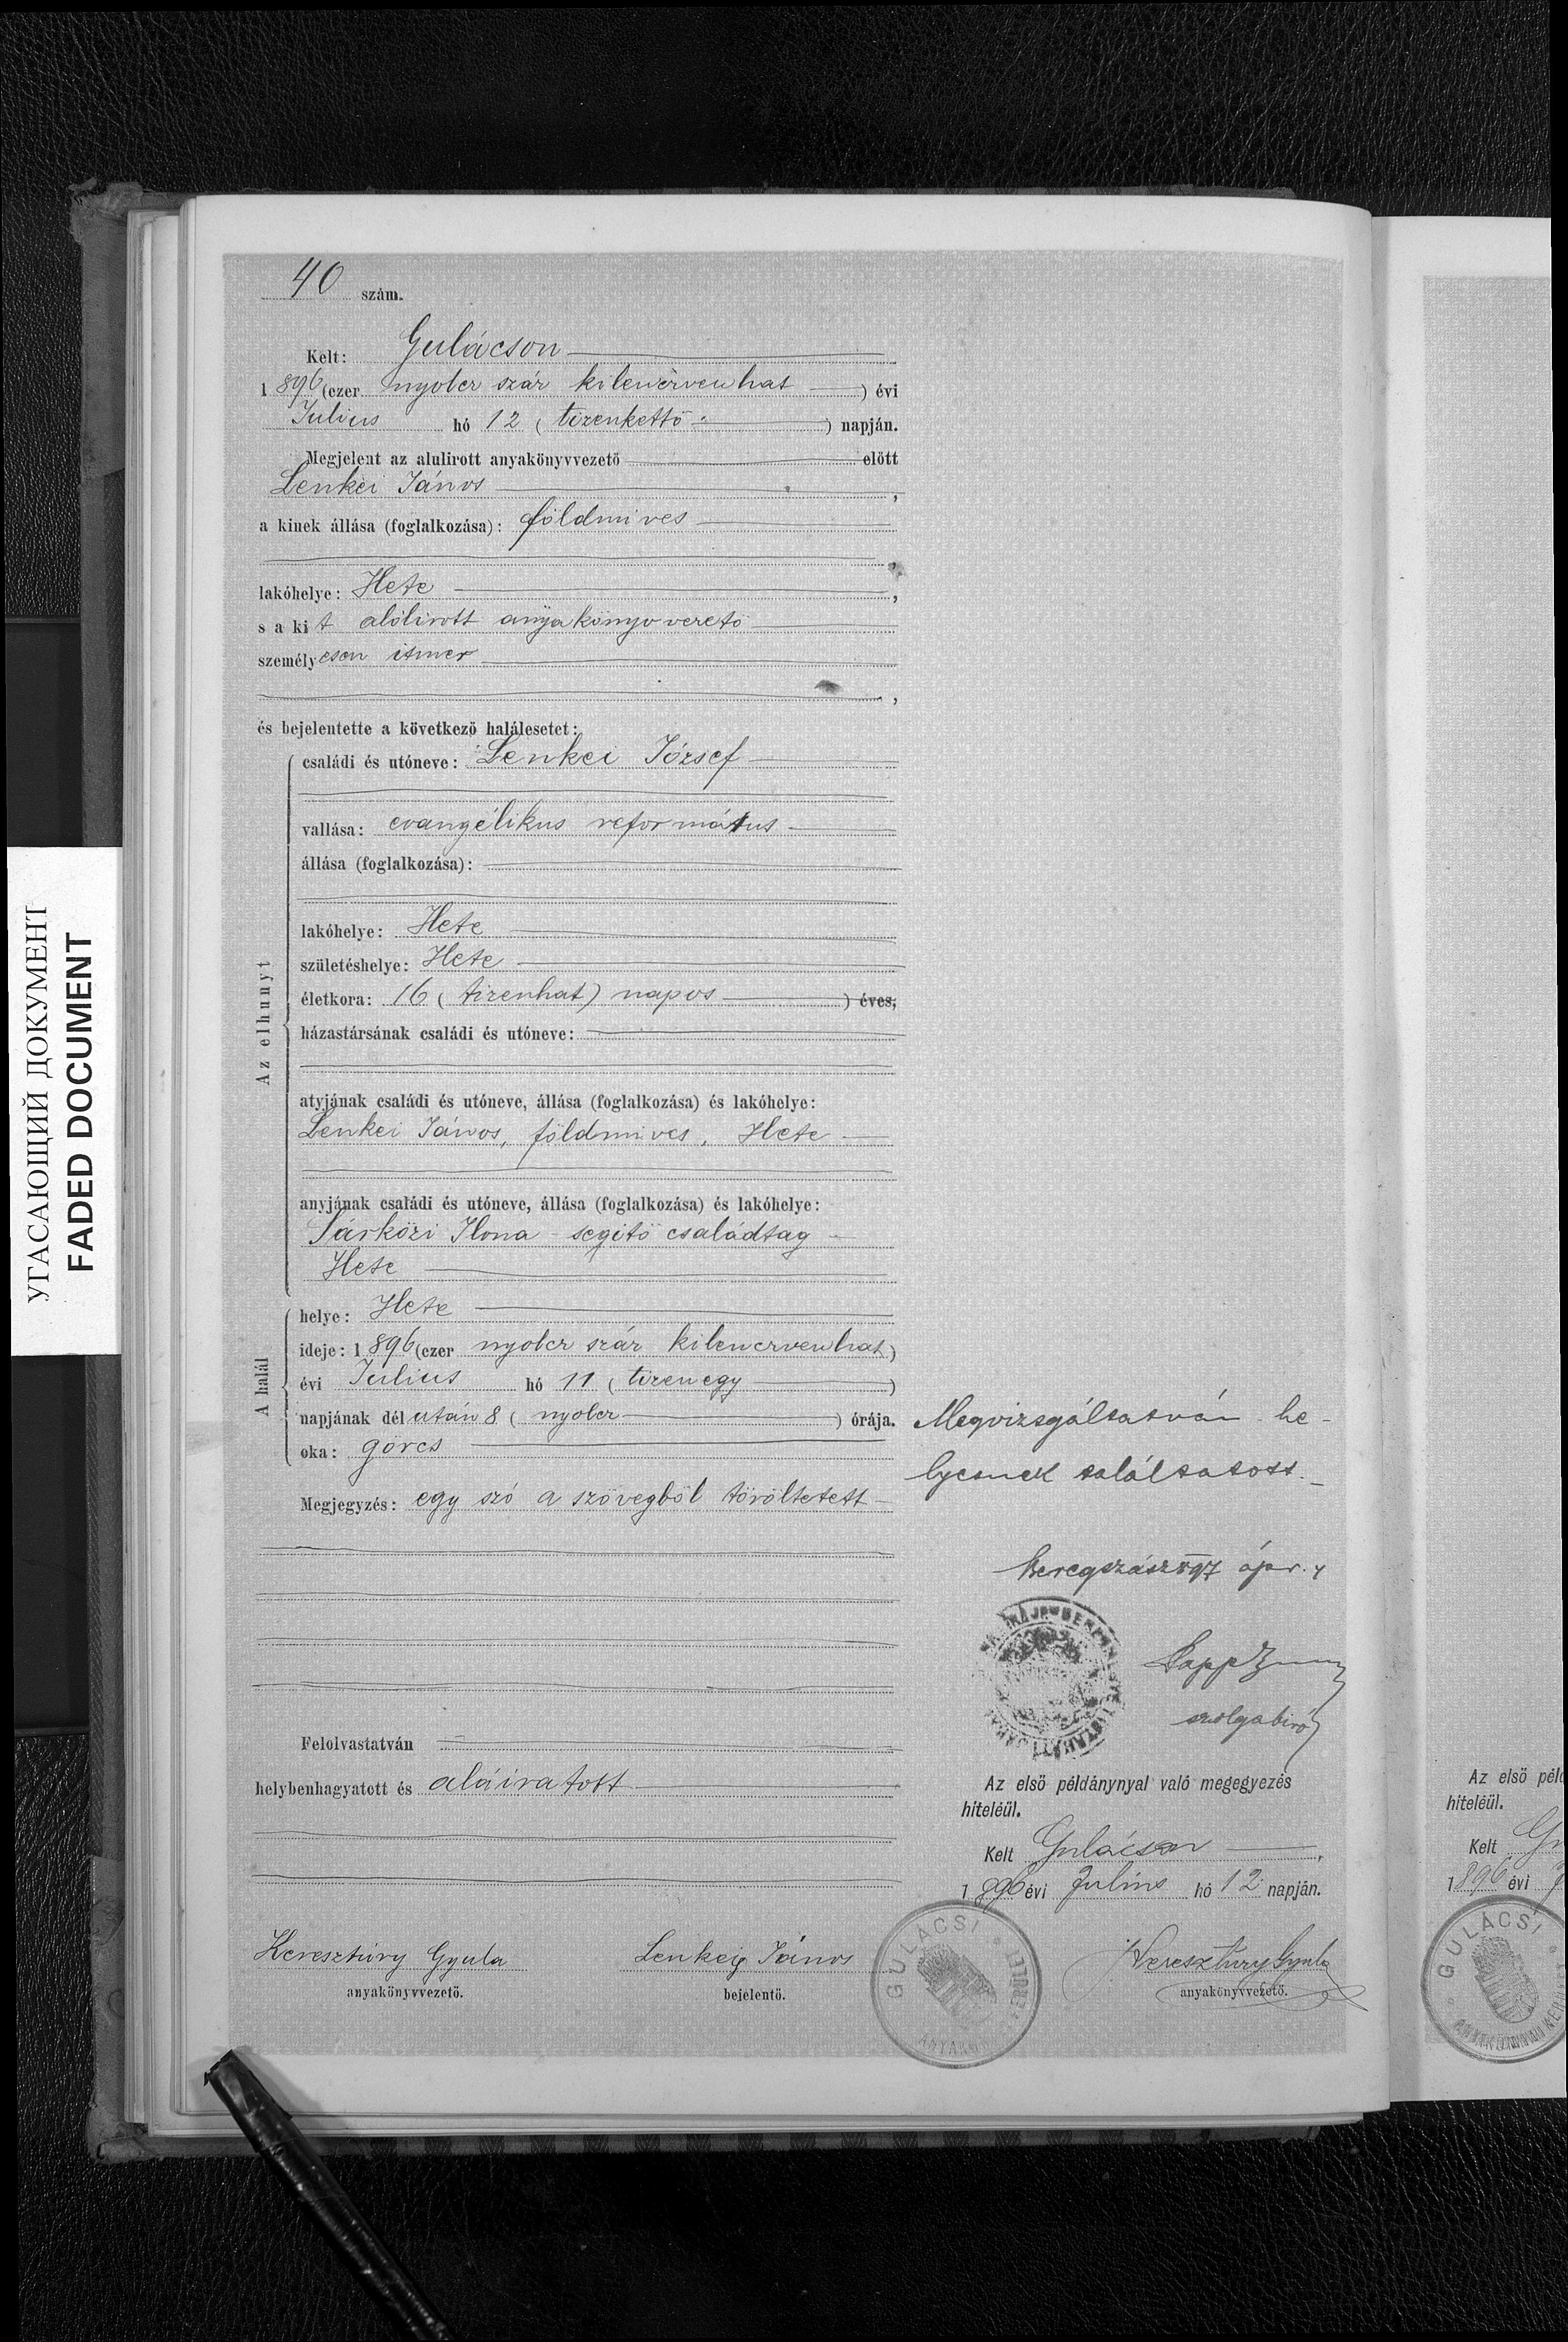 40 szám.
Kelt: Gulácson
1896 (ezer nyolcz száz kilenczvenhat) évi
Julius hó 12 (tizenkettő) napján.
Megjelent az alulirott anyakönyvvezető előtt
Lenkei János,
a kinek állása (foglalkozása): földmives
lakóhelye: Hete,
s a kit alólirott anyakönyvvezető
személyesen ismer
,
és bejelentette a következő halálesetet:
Az elhunyt
családi és utóneve: Lenkei József
vallása: evangélikus református
állása (foglalkozása):
lakóhelye: Hete
születéshelye: Hete
életkora: 16 (tizenhat) napos ) éves,
házastársának családi és utóneve:
atyjának családi és utóneve, állása (foglalkozása) és lakóhelye:
Lenkei János, földmives, Hete
anyjának családi és utóneve, állása (foglalkozása) és lakóhelye:
Sárközi Ilona - segitő családtag
Hete
A halál
helye: Hete
ideje: 1896 (ezer nyolcz száz kilenczvenhat)
évi Julius hó 11 (tizenegy)
napjának dél után 8 (nyolcz) órája.
oka: görcs
Megjegyzés: egy szó a szövegből töröltetett
Felolvastatván
helybenhagyatott és aláiratott
Keresztúry Gyula
anyakönyvvezető.
Lenkei János
bejelentő.
Megvizsgáltatván he-
lyesnek találtatott.
Beregszász 897 ápr. 4
Papp
szolgabiró
Az első példánynyal való megegyezés
hiteléül.
Kelt Gulácson,
1896 évi Julius hó 12 napján.
GULÁCSI
ANYAKÖN
Keresztúry Gyula
anyakönyvvezető.
Az első péld
hiteléül.
Kelt Gu
1896 évi J
GULÁCSI
УГАСАЮЩИЙ ДОКУМЕНТ
FADED DOCUMENT